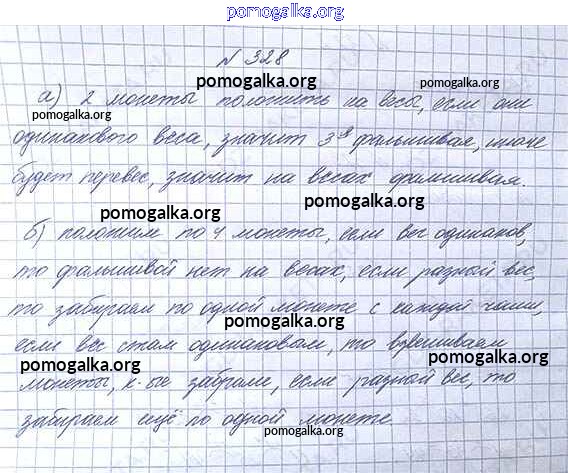 pomogalka.org
№ 328
pomogalka.org
pomogalka.org
а) 2 монеты положить на весы, если они
pomogalka.org
одинакового веса, значит 3я фальшивая, иначе
будет перевес, значит на весах фальшивая.
pomogalka.org
б) положим по 4 монеты, если вес одинаков,
то фальшивой нет на весах, если разный вес,
то забираем по одной монете с каждой чаши,
pomogalka.org
если вес стал одинаковым, то взвешиваем
pomogalka.org
pomogalka.org
монеты, к-ые забрали, если разный вес, то
забираем ещё по одной монете.
pomogalka.org